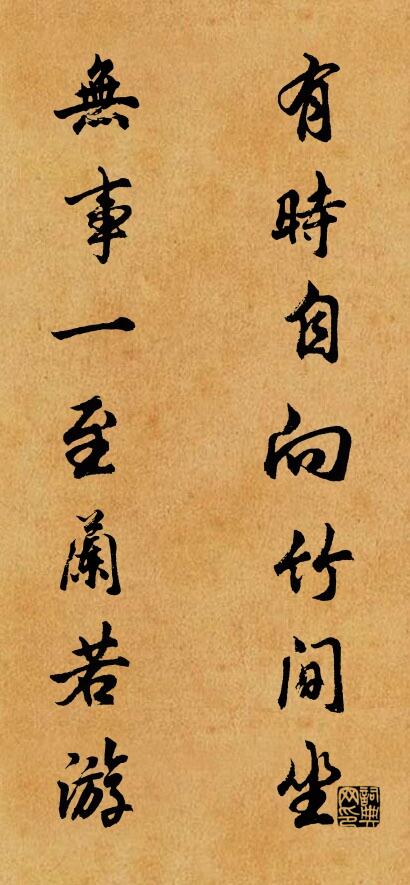 有時自向竹間坐
無事一至蘭若游
詞典網印